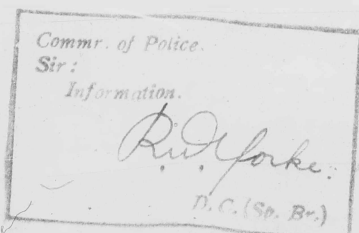 Commr. of Police.
Sir:
Information.
R.W. Yorke.
D.C. (Sp. Br.)